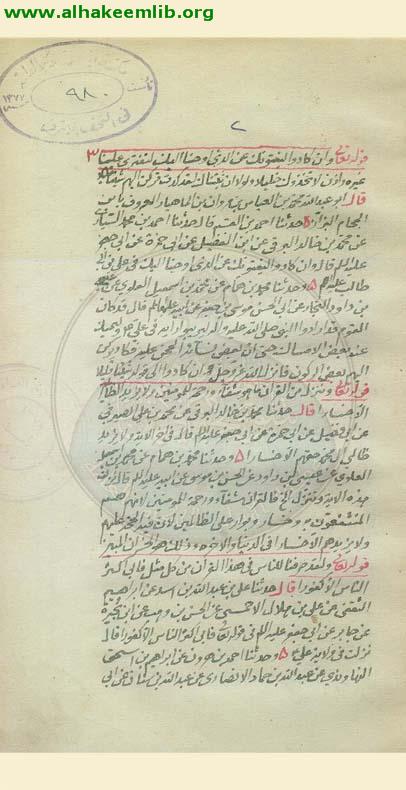 www.alhakeemlib.org
٩٨٠
٢
قوله تعالى وان كادوا ليفتنونك عن الذي اوحينا اليك لتفتري علينا
غيره واذن لاتخذوك خليلا ولولا ان ثبتناك لقد كدت تركن اليهم شيئا
قال ابو عبد الله محمد بن العباس بن مروان بن الماهيار المعروف بابن
الحجام حدثنا احمد بن القسم قال حدثنا احمد بن محمد السياري
عن محمد بن خالد البرقي عن ابن الفضيل عن ابي حمزة عن ابي جعفر
عليه السلام قال وان كادوا ليفتنونك عن الذي اوحينا اليك في علي بن ابي
طالب وحدثنا محمد بن همام عن محمد بن اسمعيل العلوي عن عيسى
بن داود النجار عن ابي الحسن موسى بن جعفر عن ابيه قال
القوم قد ارادوا النبي صلى الله عليه واله في علي
عنه بعض الامساك حتى ان بعض نسائه
اليهم بعض الركون فانزل الله عز وجل وان كادوا الى قوله قليلا
قوله تعالى وننزل من القران ما هو شفاء ورحمة للمؤمنين ولا يزيد الظالمين
الا خسارا قال حدثنا محمد بن خالد البرقي عن محمد بن علي الصيرفي
عن ابن فضيل عن ابي حمزة عن ابي جعفر عليه السلام قال ولا يزيد
ظالمي ال محمد حقهم الا خسارا وحدثنا محمد بن همام عن محمد بن اسمعيل
العلوي عن عيسى بن داود عن ابي الحسن موسى عن ابيه عليه السلام قال نزلت
هذه الاية وننزل من القران شفاء ورحمة للمؤمنين لانهم هم
المنتفعون به وخسار وبوار على الظالمين لان فيه الحجة عليهم
ولا يزيدهم الا خسارا في الدنيا والاخرة وذلك هو الخسران المبين
قوله تعالى ولقد صرفنا للناس في هذا القران من كل مثل فابى اكثر
الناس الا كفورا قال حدثنا علي بن عبد الله بن اسد عن ابراهيم
الثقفي عن علي بن هلال الاحمسي عن الحسن بن وهب عن ابن بحيرة
عن جابر عن ابي جعفر عليه السلام في قوله تعالى فابى اكثر الناس الا كفورا قال
نزلت في ولاية علي وحدثنا احمد بن هوذة عن ابراهيم بن اسحق
النهاوندي عن عبد الله بن حماد الانصاري عن عبد الله بن سنان عن ابي